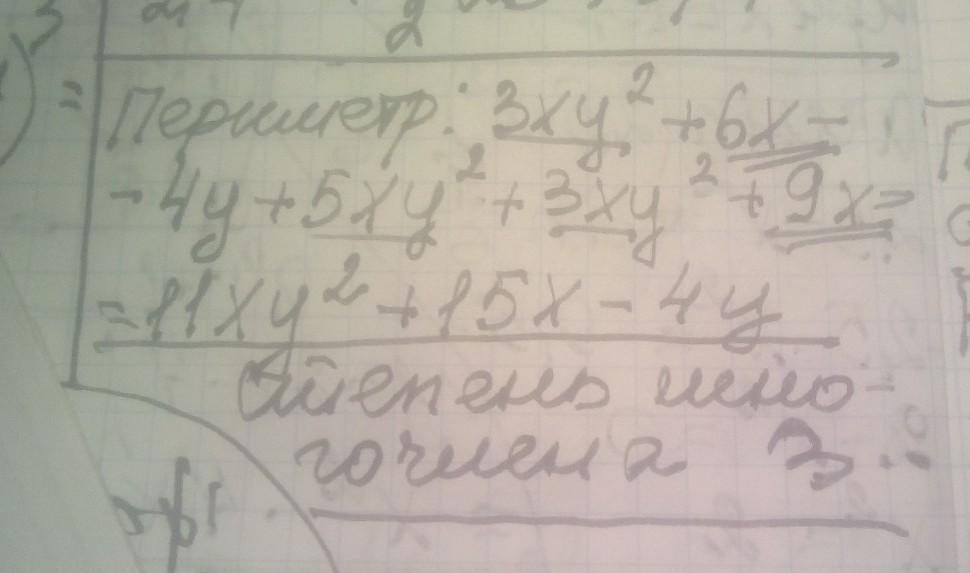 Периметр: 3xy² + 6x -
- 4y + 5xy² + 3xy² + 9x =
= 11xy² + 15x - 4y
Степень мно-
гочлена 3